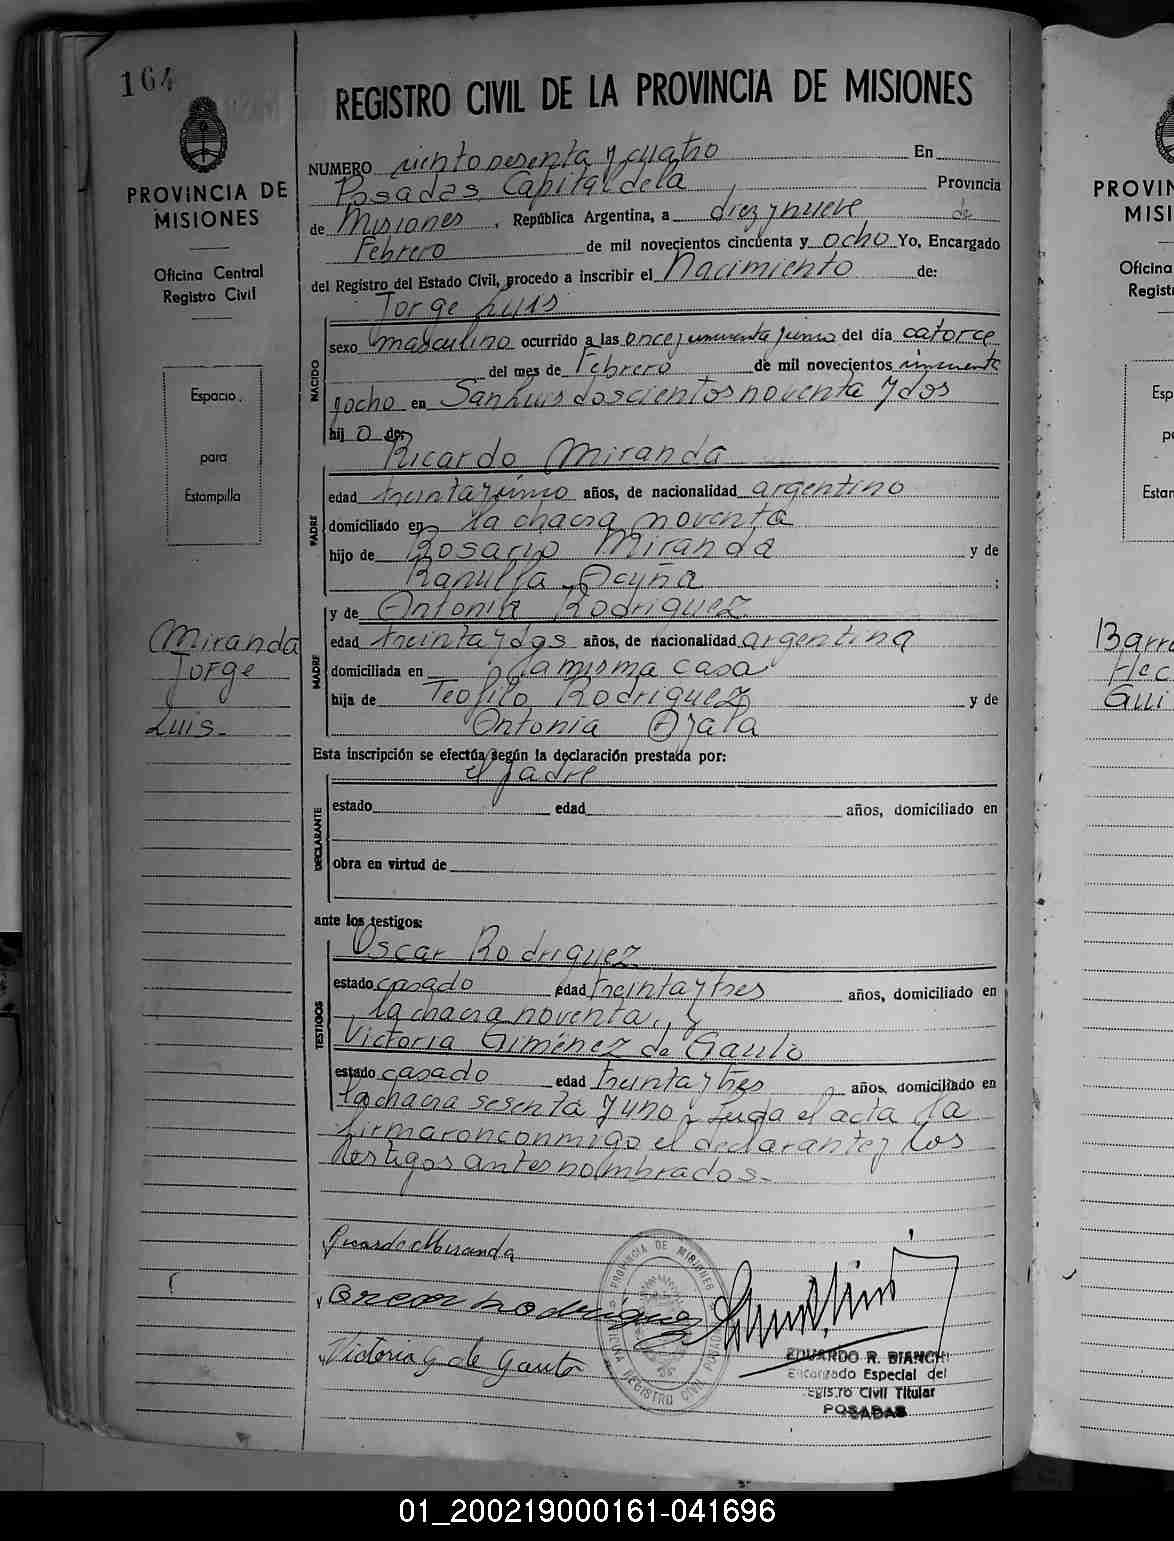 164
PROVINCIA DE
MISIONES
Oficina Central
Registro Civil
Espacio
para
Estampilla
Miranda
Jorge
Luis.-
REGISTRO CIVIL DE LA PROVINCIA DE MISIONES
NUMERO ciento sesenta y cuatro En
Posadas Capital de la Provincia
de Misiones, República Argentina, a diez y nueve de
Febrero de mil novecientos cincuenta y ocho Yo, Encargado
del Registro del Estado Civil, procedo a inscribir el Nacimiento de:
Jorge Luis
NACIDO
sexo masculino ocurrido a las once y cincuenta y cinco del día catorce
del mes de Febrero de mil novecientos cincuenta
y ocho en San Luis doscientos noventa y dos
hij o de:
Ricardo Miranda
PADRE
edad treinta y cinco años, de nacionalidad argentino
domiciliado en la chacra noventa
hijo de Rosario Miranda y de
Ranulfa Acuña ;
y de Antonia Rodriguez
MADRE
edad treinta y dos años, de nacionalidad argentina
domiciliada en la misma casa
hija de Teofilo Rodriguez y de
Antonia Ayala
Esta inscripción se efectúa según la declaración prestada por:
el padre
DECLARANTE
estado edad años, domiciliado en
obra en virtud de
ante los testigos:
Oscar Rodriguez
TESTIGOS
estado casado edad treinta y tres años, domiciliado en
la chacra noventa, y
Victoria Giménez de Gauto
estado casado edad treinta y tres años, domiciliado en
la chacra sesenta y uno; Leida el acta la
firmaron conmigo el declarante y los
testigos antes nombrados.-
Ricardo Miranda
Oscar Rodriguez
Victoria G de Gauto
PROVINCIA DE MISIONES
REGISTRO CIVIL
EDUARDO R. BIANCHI
Encargado Especial del
Registro Civil Titular
POSADAS
PROVIN
MISI
Oficina
Regist
Esp
p
Estan
Barre
Hec
Gui
01_200219000161-041696